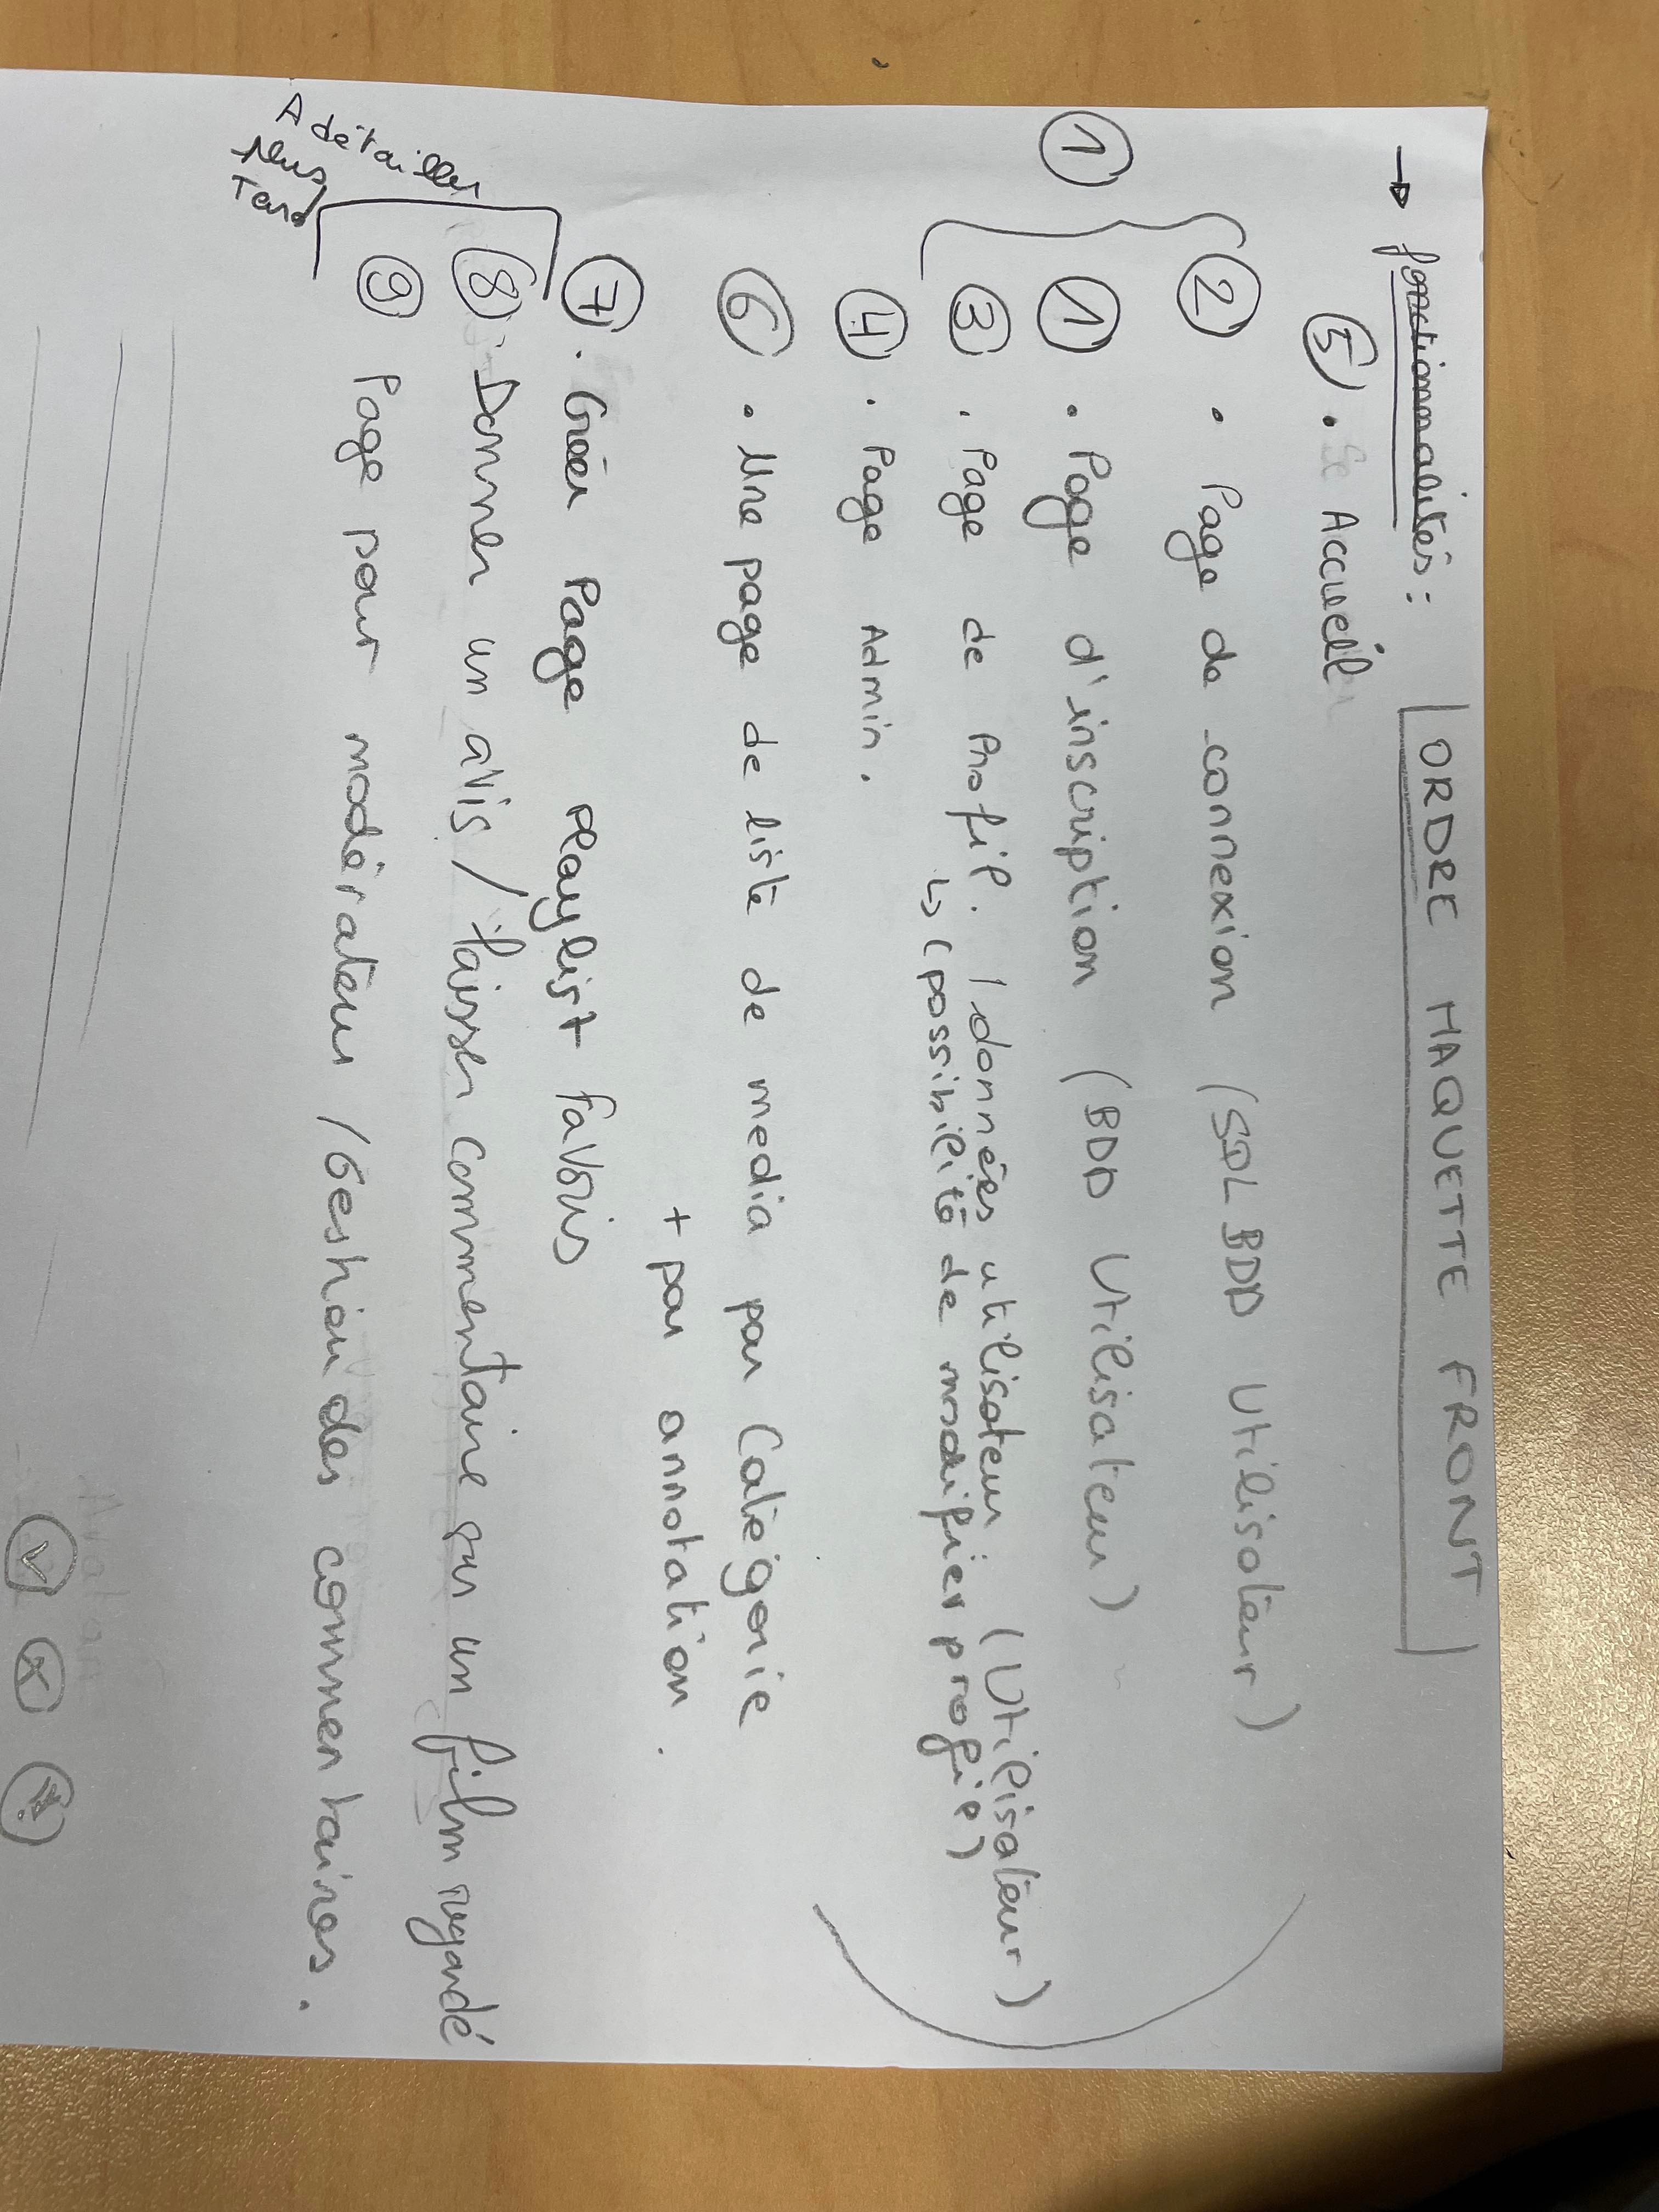 → fonctionnalités : ORDRE MAQUETTE FRONT
⑤ . Accueil
② . Page de connexion (SQL BDD Utilisateur)
①
① . Page d'inscription (BDD Utilisateur)
③ . Page de Profil. / données utilisateur (Utilisateur)
↳ (possibilité de modifier profil)
④ . Page Admin.
⑥ . Une page de liste de media par Catégorie
+ par annotation.
⑦ . Créer Page Playlist favoris
A détailler
plus
Tard
⑧ . Donner un avis / laisser commentaire sur un film regardé
⑨ Page pour modérateur / Gestion des commentaires.